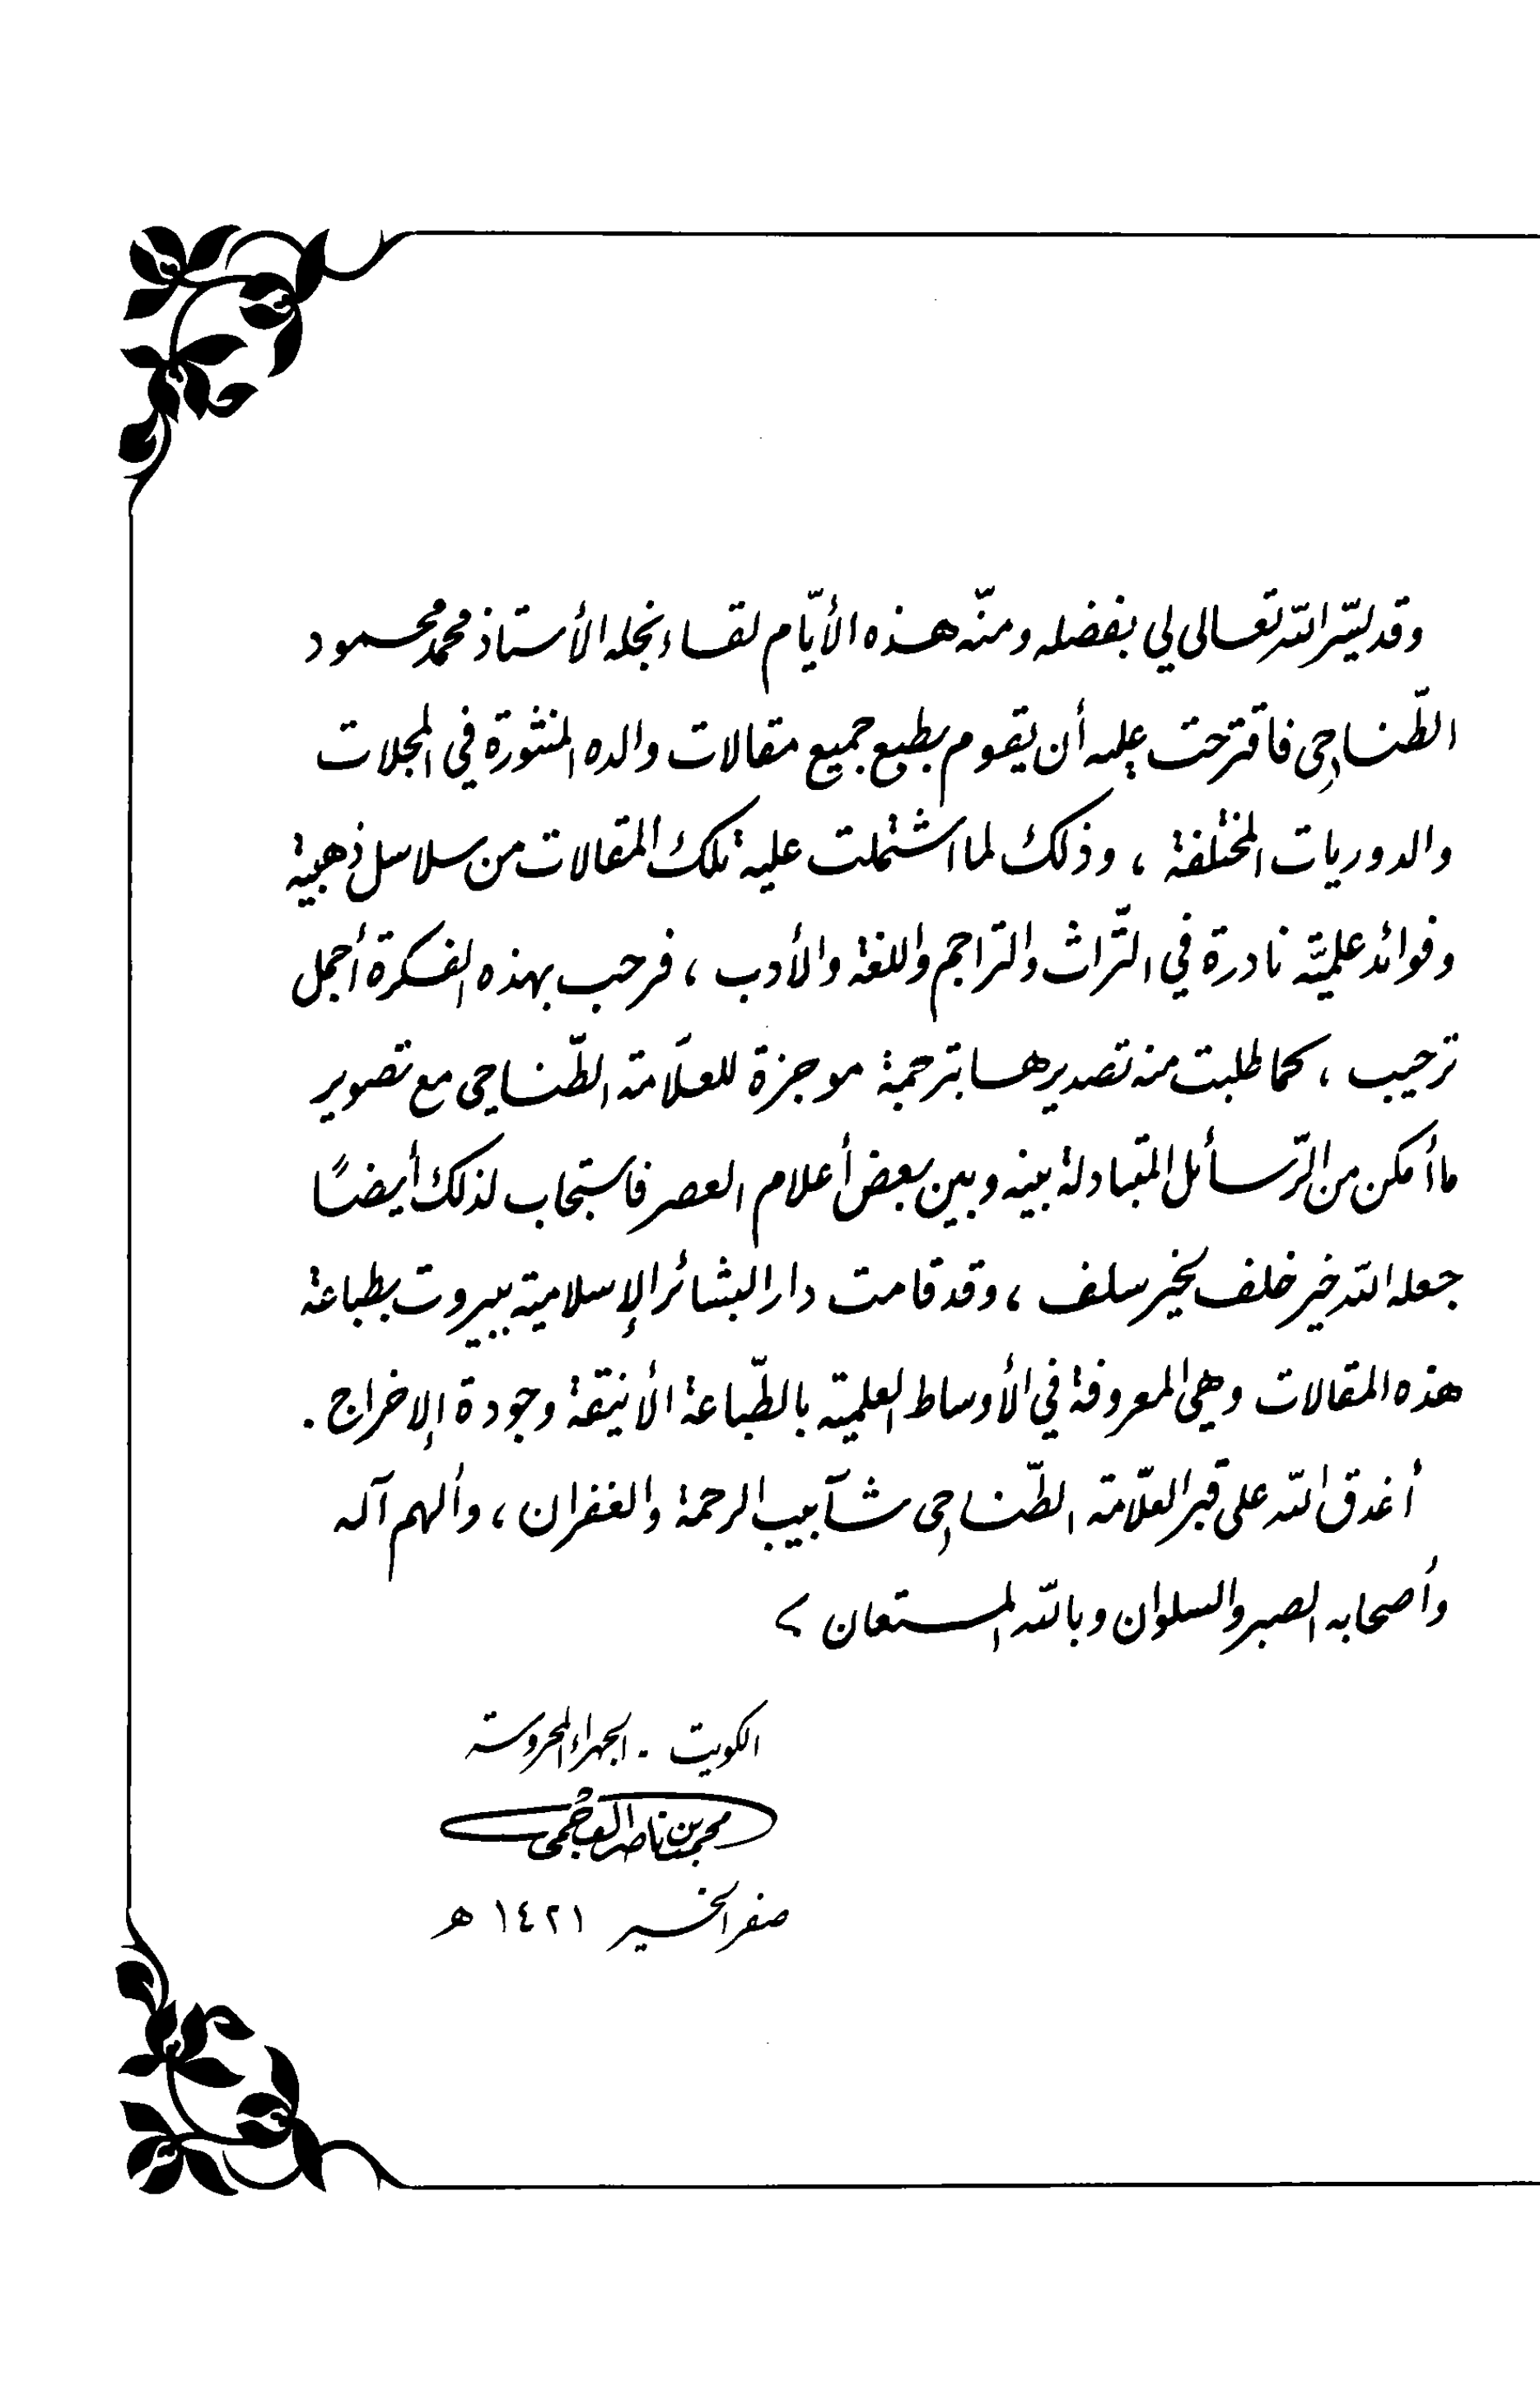 وقد يسّر الله تعالى لي بفضله ومنّه هذه الأيّام لقاء نجله الأستاذ محمد محمود
الطّناحي فاقترحت عليه أن يقوم بطبع جميع مقالات والده المنثورة في المجلات
والدوريات المختلفة ، وذلك لما اشتملت عليه تلك المقالات من سلاسل ذهبية
وفوائد علميّة نادرة في التّراث والتراجم واللغة والأدب ، فرحب بهذه الفكرة أجمل
ترحيب ، كما طلبت منه تصديرها بترجمة موجزة للعلّامة الطّناحي مع تصوير
ما أمكن من الرّسائل المتبادلة بينه وبين بعض أعلام العصر فاستجاب لذلك أيضًا
جعله الله خير خلف لخير سلف ، وقد قامت دار البشائر الإسلامية ببيروت بطباعة
هذه المقالات وهي المعروفة في الأوساط العلمية بالطّباعة الأنيقة وجودة الإخراج .
أغدق الله على قبر العلّامة الطّناحي شآبيب الرحمة والغفران ، وألهم آله
وأصحابه الصبر والسلوان وبالله المستعان
الكويت - الجهراء المحروسة
محمد بن ناصر العجمي
صفر الخير ١٤٢١ هـ